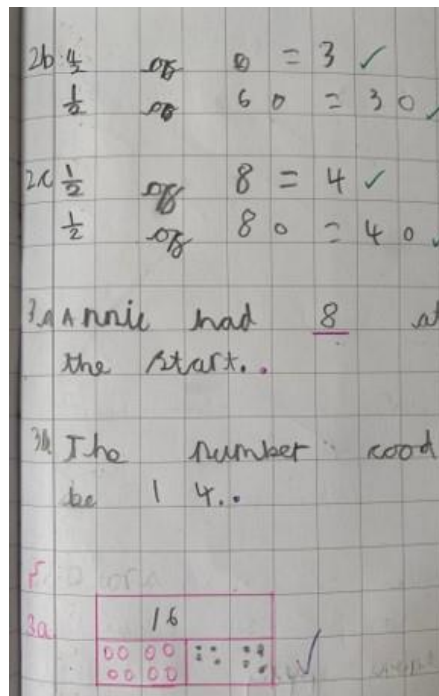 2b ½ of 6 = 3 ✓
½ of 60 = 30 ✓
2c ½ of 8 = 4 ✓
½ of 80 = 40 ✓
3a Annie had 8 at
the start..
3b The number cood
be 14..
3a
16